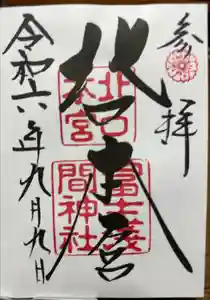 参拝
北口本宮
北口本宮
冨士浅間神社
令和六年九月九日